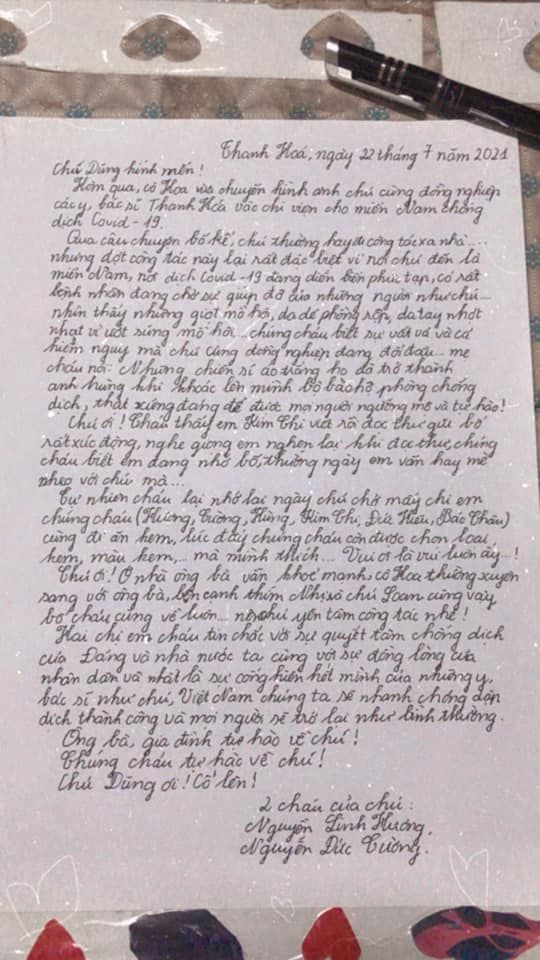 Thanh Hoá, ngày 22 tháng 7 năm 2021
Chú Dũng kính mến!
Hôm qua, cô Hoa vừa chuyển hình ảnh chú cùng đồng nghiệp
các y, bác sĩ Thanh Hóa vào chi viện cho miền Nam chống
dịch Covid-19.
Qua câu chuyện bố kể, chú thường hay đi công tác xa nhà....
nhưng đợt công tác này lại rất đặc biệt vì nơi chú đến là
miền Nam, nơi dịch Covid-19 đang diễn biến phức tạp, có rất
bệnh nhân đang chờ sự giúp đỡ của những người như chú...
nhìn thấy những giọt mồ hôi, da dẻ phồng rộp, da tay nhợt
nhạt vì ướt sũng mồ hôi... chúng cháu biết sự vất vả và cả
hiểm nguy mà chú cùng đồng nghiệp đang đối đầu... mẹ
cháu nói: Những chiến sĩ áo trắng họ đã trở thành
anh hùng khi khoác lên mình bộ bảo hộ phòng chống
dịch, thật xứng đáng để được mọi người ngưỡng mộ và tự hào!
Chú ơi! Cháu thấy em Kim Chi viết rồi đọc thư gửi bố
rất xúc động, nghe giọng em nghẹn lại khi đọc thư, chúng
cháu biết em đang nhớ bố, thường ngày em vẫn hay mè
nheo với chú mà...
Tự nhiên cháu lại nhớ lại ngày chú chở mấy chị em
chúng cháu (Hương, Tường, Hùng, Kim Chi, Đức Hiếu, Bảo Châu)
cùng đi ăn kem, lúc đấy chúng cháu còn được chọn loại
kem, màu kem,... mà mình thích... Vui ơi là vui luôn ấy...!
Chú ơi! Ở nhà ông bà vẫn khoẻ mạnh, cô Hoa thường xuyên
sang với ông bà, bên cạnh thím Nhị, và chú Loan cũng vậy
bố cháu cũng về luôn... nên chú yên tâm công tác nhé!
Hai chị em cháu tin chắc với sự quyết tâm chống dịch
của Đảng và nhà nước ta cùng với sự đồng lòng của
nhân dân và nhất là sự cống hiến hết mình của những y,
bác sĩ như chú, Việt Nam chúng ta sẽ nhanh chóng dập
dịch thành công và mọi người sẽ trở lại như bình thường.
Ông bà, gia đình tự hào về chú!
Chúng cháu tự hào về chú!
Chú Dũng ơi! Cố lên!
2 cháu của chú:
Nguyễn Linh Hương.
Nguyễn Đức Tường.